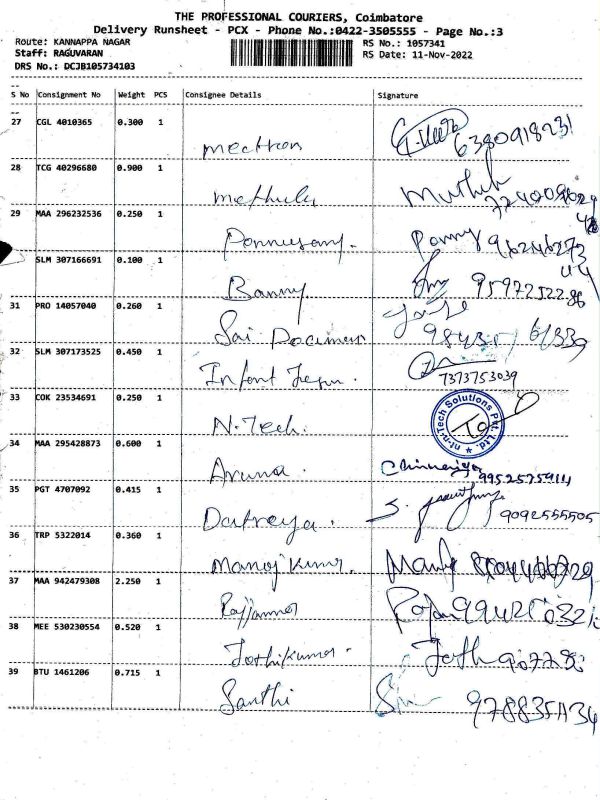 THE PROFESSIONAL COURIERS, Coimbatore
Delivery Runsheet - PCX - Phone No.:0422-3505555 - Page No.:3
Route: KANNAPPA NAGAR RS No.: 1057341
Staff: RAGUVARAN RS Date: 11-Nov-2022
DRS No.: DCJB105734103
S No Consignment No Weight PCS Consignee Details Signature
27 CGL 4010365 0.300 1
Mectron 6380918231
28 TCG 40296680 0.900 1
Methula
29 MAA 296232536 0.250 1
Ponnusamy. Ponny
SLM 307166691 0.100 1
Banny
31 PRO 14057040 0.260 1
Sai Document
32 SLM 307173525 0.450 1
Infant Jesu. 7373753039
33 COK 23534691 0.250 1
N.Tech. nt-nTech Solutions Pvt. Ltd.
34 MAA 295428873 0.600 1
Aruna.
35 PGT 4707092 0.415 1
Datreya. 9092555505
36 TRP 5322014 0.360 1
Manoj Kumr.
37 MAA 942479308 2.250 1
38 MEE 530230554 0.520 1
Jothikumar. Joth
39 BTU 1461206 0.715 1
Santhi